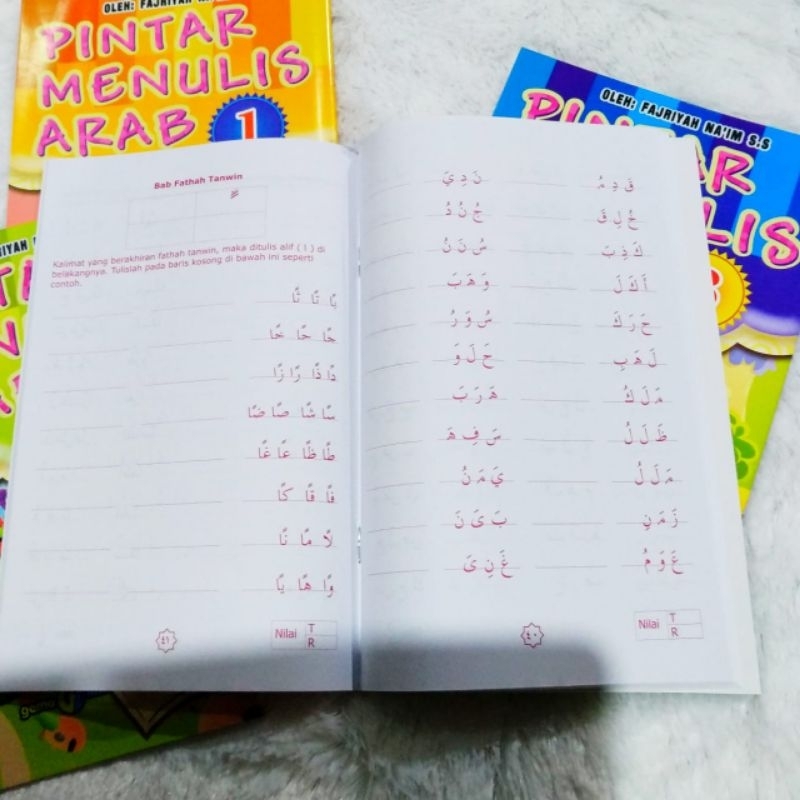 OLEH: FAJRIYAH NA'IM
PINTAR
MENULIS
ARAB
1
OLEH: FAJRIYAH NA'IM S.S
Bab Fathah Tanwin
Kalimat yang berakhiran fathah tanwin, maka ditulis alif ( ا ) di
belakangnya. Tulislah pada baris kosong di bawah ini seperti
contoh.
بًا تًا ثًا
جًا حًا خًا
دًا ذًا رًا زًا
سًا شًا صًا ضًا
طًا ظًا عًا غًا
فًا قًا كًا
لًا مًا نًا
وًا هًا يًا
Nilai T
R
٤١
قَ دِ مُ نَ دِ يَ
خُ لِ قَ جُ نُ دُ
كَ ذِ بَ سُ نَ نُ
أَ كَ لَ وَ هَ بَ
حَ رَ كَ سُ وَ رُ
لَ هَ بِ حَ لَ وَ
مَ لَ كُ هَ رَ بَ
ظَ لَ لُ سَ فِ هَ
مَ لَ لُ يَ مَ نُ
زَ مَ نِ بَ ىَ نَ
عَ وَ مُ غَ نِ ىَ
Nilai T
R
٤٠